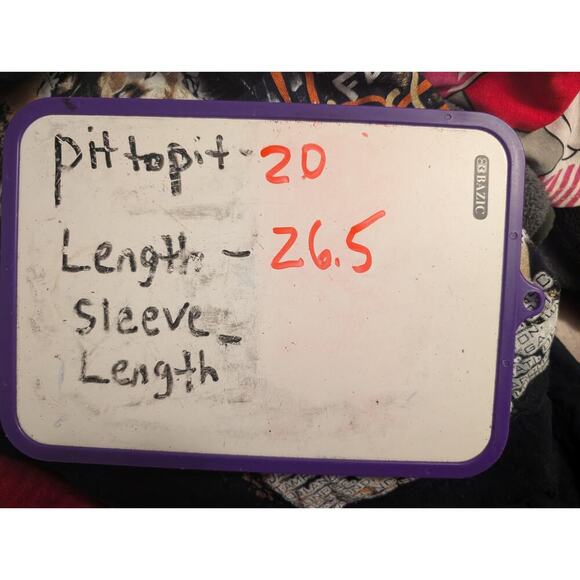 pit to pit - 20
Length - 26.5
Sleeve -
Length
BAZIC